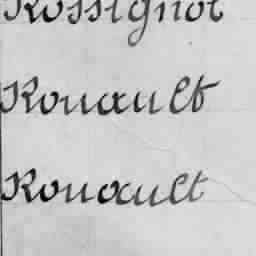 Rossignol
Rouault
Rouault